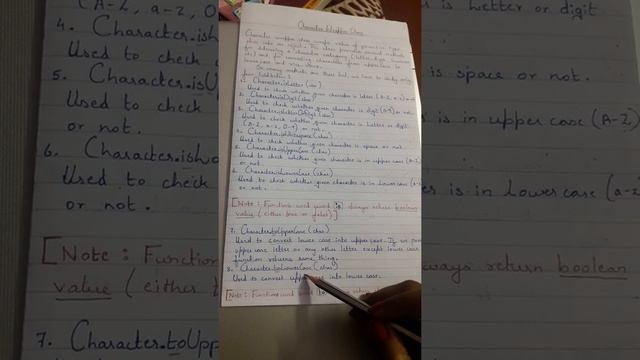 Character Wrapper Class
Character wrapper class wraps value of primitive type
char into an object. This class provides several methods
for determining a character category (letter, digit, lowercase
etc) and for converting characters from uppercase to
lowercase and vice versa.
So many methods are there but we have to study only
1. Character.isLetter (char)
Used to check whether given character is letter (A-Z, a-z) or not.
2. Character.isDigit (char)
Used to check whether given character is digit (0-9) or not.
3. Character.isLetterOrDigit (char)
Used to check whether given character is Letter or digit
(A-Z, a-z, 0-9) or not.
4. Character.isWhitespace (char)
Used to check whether given character is space or not.
5. Character.isUpperCase (char)
Used to check whether given character is in upper case (A-Z)
or not.
6. Character.isLowerCase (char)
Used to check whether given character is in lower case (a-z)
or not.
[Note: Functions word used is always return boolean
value (either true or false)]
7. Character.toUpperCase (char)
Used to convert lower case into upper case. If we pass
uppercase letter or any other letter except lower case
function returns same thing.
8. Character.toLowerCase (char)
Used to convert upper case into lower case.
[Note: Functions word used to
(A-Z, a-z, 0
4. Character.isWh
Used to check
5. Character.isU
Used to check
or not.
6. Character.isLo
Used to check
or not.
[Note: Function
value (either t
7. Character.toUpp
is Letter or digit
is space or not.
is in upper case (A-Z)
is in lower case (a-z
always return boolean